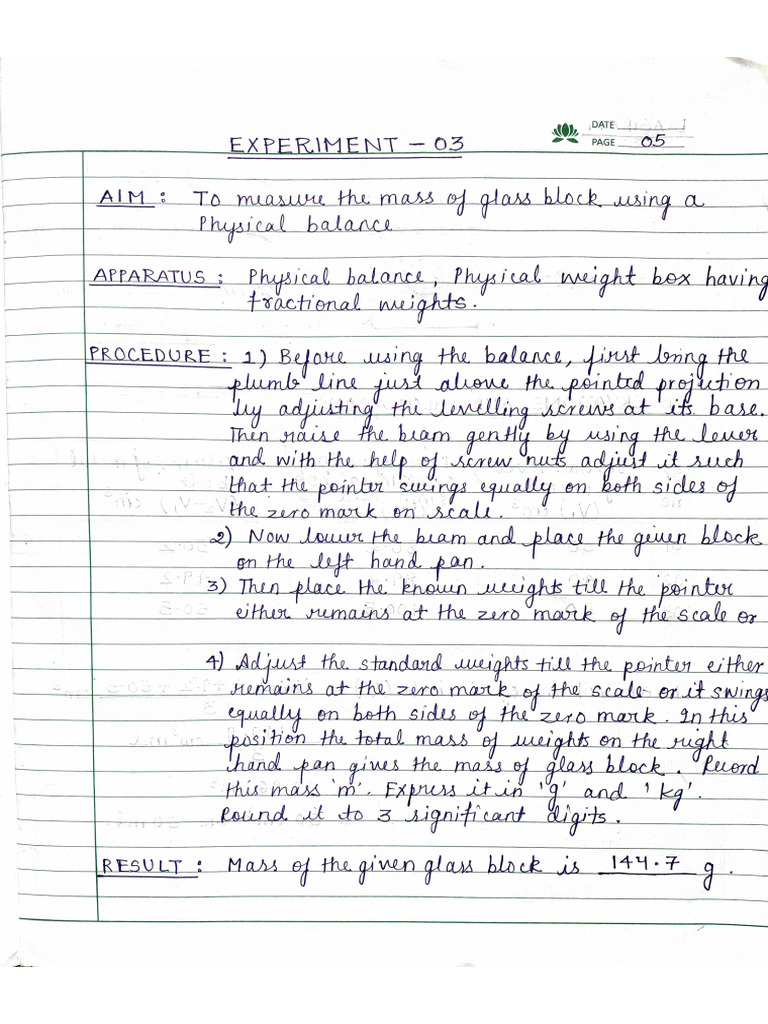 DATE
PAGE 05
EXPERIMENT - 03
AIM : To measure the mass of glass block using a
Physical balance
APPARATUS : Physical balance, Physical weight box having
fractional weights.
PROCEDURE : 1) Before using the balance, first bring the
plumb line just above the pointed projection
by adjusting the levelling screws at its base.
Then raise the beam gently by using the lever
and with the help of screw nuts adjust it such
that the pointer swings equally on both sides of
the zero mark on scale.
2) Now lower the beam and place the given block
on the left hand pan.
3) Then place the known weights till the pointer
either remains at the zero mark of the scale or
4) Adjust the standard weights till the pointer either
remains at the zero mark of the scale or it swings
equally on both sides of the zero mark. In this
position the total mass of weights on the right
hand pan gives the mass of glass block. Record
this mass 'm'. Express it in 'g' and 'kg'.
Round it to 3 significant digits.
RESULT : Mass of the given glass block is 144.7 g.